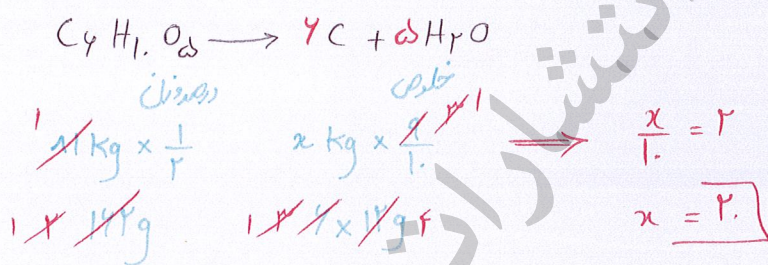 C۶ H۱۰ O۵ → ۶C + ۵H۲O
درصد وزنی خلوص
۱ ۸۱ kg × ۱/۲ x kg × ۹/۱۰ ۳ ۱ ⟹ x/۱۰ = ۲
۱ ۲ ۱۶۲g ۱ ۳ ۶ × ۱۲g ۴ x = ۲۰